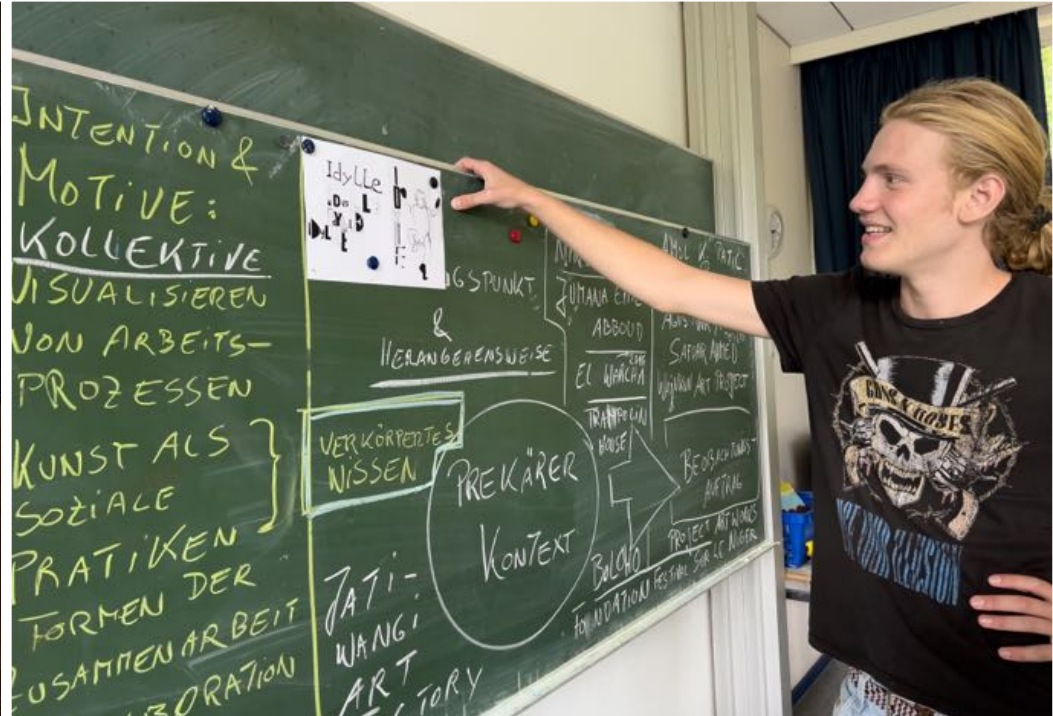 INTENTION &
MOTIVE:
KOLLEKTIVE
VISUALISIEREN
VON ARBEITS-
PROZESSEN
KUNST ALS
SOZIALE
PRATIKEN
FORMEN DER
ZUSAMMENARBEIT
IdyLLe
GSPUNKT
&
HERANGEHENSWEISE
VERKÖRPERTES
WISSEN
PREKÄRER
KONTEXT
JATI-
WANGI
ART
JUMANA
ABBOUD
EL WARCHA
TRAMPOLIN
HOUSE
BOLOHO
FOUNDATION FESTIVAL SUR LE NIGER
AMOL K PATIL
SAFDAR AHMED
WAJUKUU ART PROJECT
BEOBACHTUNGS-
AUFTRAG
PROJECT ART WORKS
GUNS N ROSES